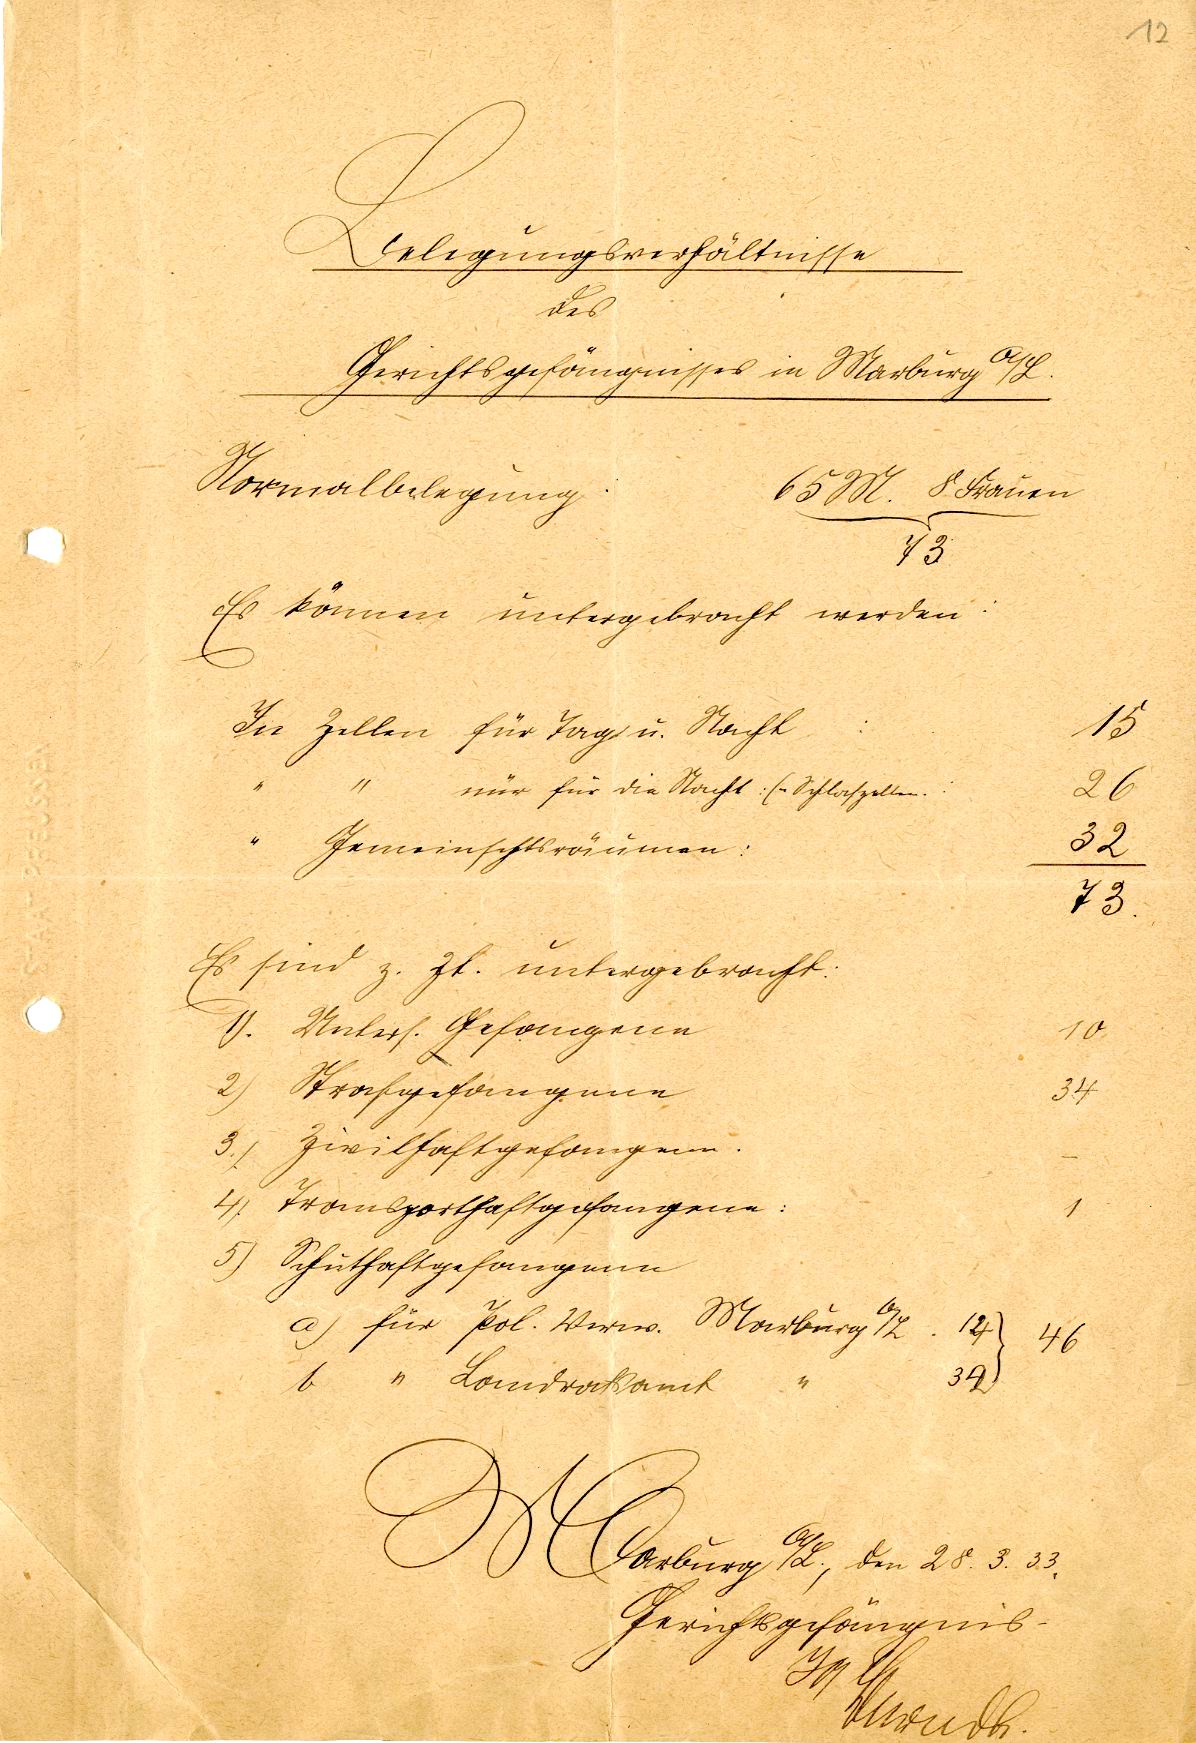 12
Belegungsverhältnisse
des
Gerichtsgefängnisses in Marburg a/L.
Normalbelegung: 65 M. 8 Frauen
73
Es können untergebracht werden:
In Zellen für Tag u. Nacht : 15
" " nur für die Nacht :(= Schlafzellen. : 26
" Gemeinschtsräumen: 32
73.
Es sind z. Zt. untergebracht:
1). Unters. Gefangene 10
2) Strafgefangene 34
3.) Zivilhaftgefangene. –
4). Transporthaftgefangene: 1
5) Schuthaftgefangene
a) für Pol. Verw. Marburg a/L. 12 } 46
b " Landratsamt " 34
Marburg a/L., den 28. 3. 33.
Gerichtsgefängnis-
STAAT PREUSSEN